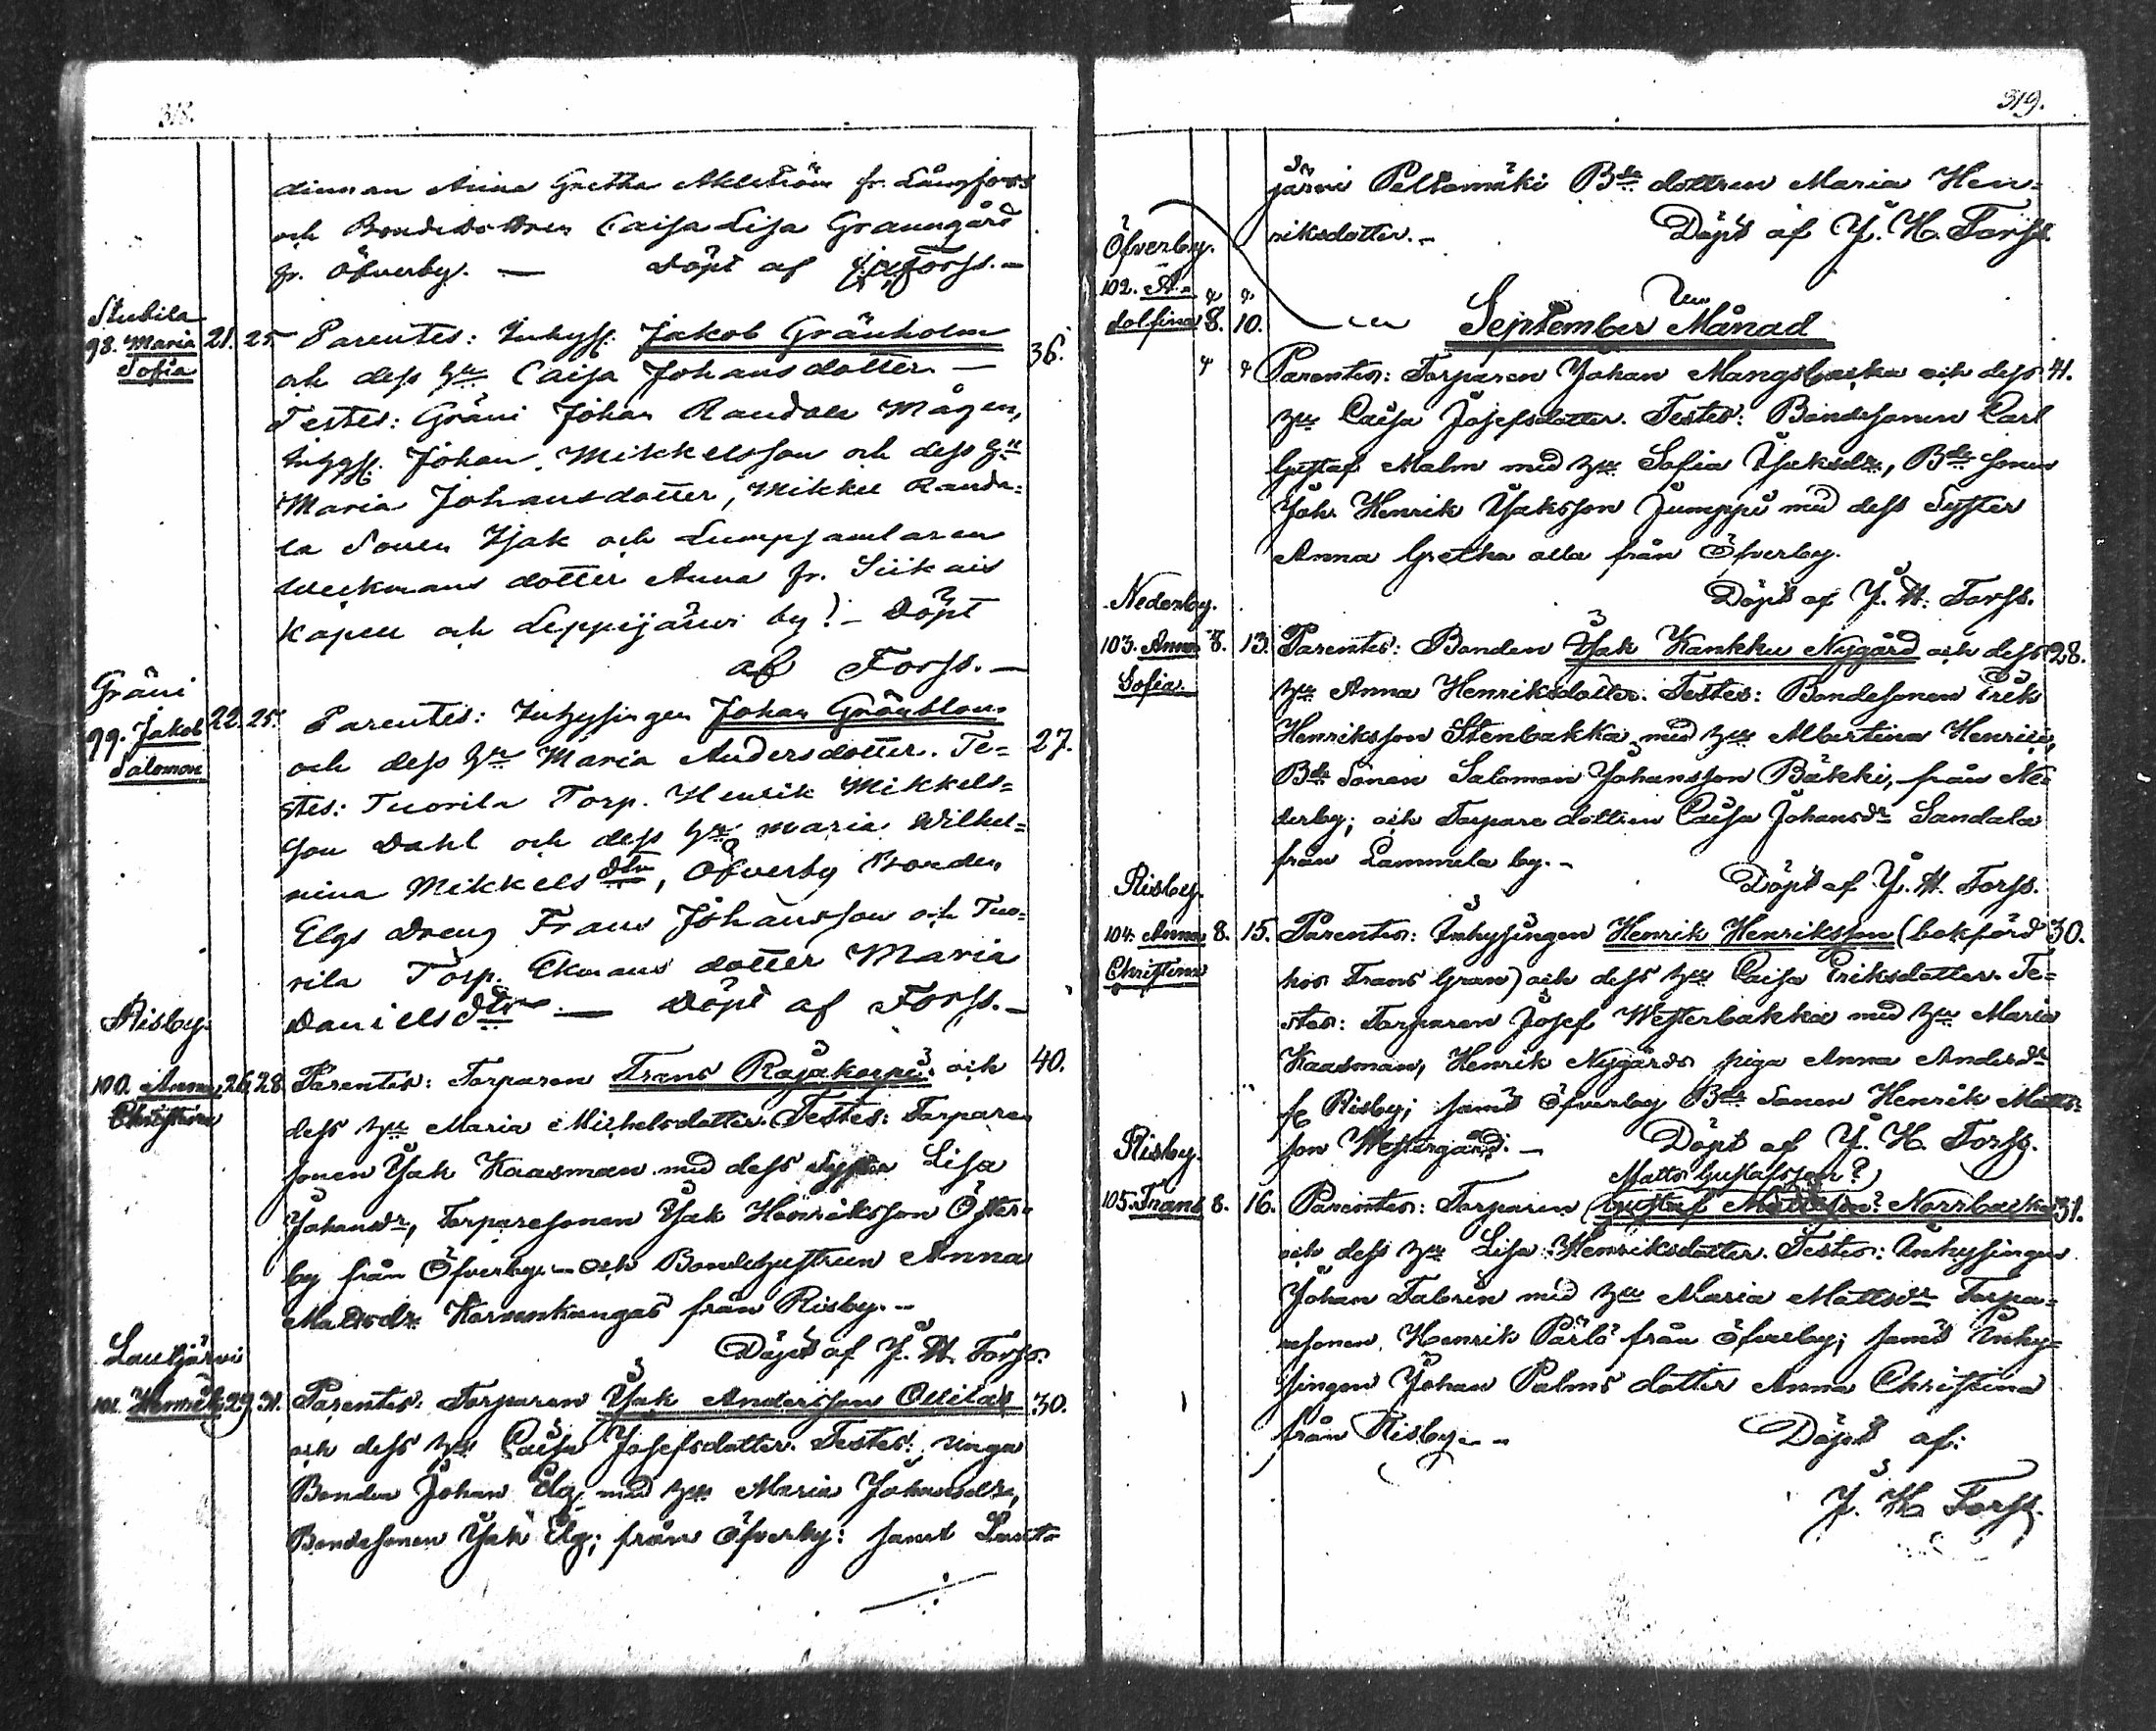 318.
dinnan Anna Gretha Akeström fr. Långfors
och Bondedottren Caisa Lisa Granngård
fr. Öfverby. — Döpt af Forss. —
Stubila
98. Maria Sofia 21. 25. Parentes: Inhys. Jakob Gränholm 36.
och dess h:u Caisa Johansdotter. —
Testes: Gräni Johan Randala Mågen,
Inhys. Johan Mikkelsson och dess h:u
Maria Johansdotter, Mikkel Randa=
la Sonen Isak och Lumpsamlaren
Weckmans dotter Anna fr. Siikais
Kapell och Leppijärvi by! — Döpt
af Forss. —
Gräni
99. Jakob Salomon 22. 25. Parentes: Inhysingen Johan Grönblom
och dess h:u Maria Andersdotter. Te= 27.
stes: Tuorila Torp. Henrik Mikkels=
son Dahl och dess h:u Maria Wilhel=
mina Mikkels dtr, Öfverby Bonden
Elgs Dreng Frans Johansson och Tuo=
rila Torp. Ekmans dotter Maria
Daniels dtr — Döpt af Forss. —
Risby.
100. Anna Christina 26. 28. Parentes: Torparen Frans Rajakorpi och 40.
dess h:u Maria Michelsdotter. Testes: Torpare
sonen Isak Kaasman med dess syster Lisa
Johansdr, Torparesonen Isak Henriksson Öster=
by från Öfverby — och Bondehustrun Anna
Mattsdr. Karunkangas från Risby. —
Döpt af J. H. Forss.
Lautjärvi
101. Henrik 29. 31. Parentes: Torparen Isak Andersson Ollila 30.
och dess h:u Caisa Josefsdotter. Testes: unga
Bonden Johan Elg med h:u Maria Johansdr,
Bondesonen Isak Elg; från Öfverby: samt Lautt=
319.
järvi Peltomäki B:de dottren Maria Hen=
riksdotter. — Döpt af J. H. Forss.
September Månad
Öfverby.
102. A=
dolfina 8. 10.
Parentes: Torparen Johan Mangsbacka och dess 41.
h:u Caisa Josefsdotter. Testes: Bondesonen Carl
Gustaf Malm med h:u Sofia Isaksdr, B:de sonen
Joh. Henrik Isaksson Jumppu med dess Syster
Anna Gretha alla från Öfverby.
Döpt af J. H. Forss.
Nederby.
103. Anna Sofia 8. 13. Parentes: Bonden Isak Kankku Nygård och dess 28.
h:u Anna Henriksdotter. Testes: Bondesonen Erik
Henriksson Stenbakka med h:u Albertina Henrici,
B:de Sonen Salomon Johansson Bäkki, från Ne=
derby; och Torpare dottren Caisa Johansdr Sandala
från Lammela by. —
Döpt af J. H. Forss.
Risby.
104. Anna Christina 8. 15. Parentes: Inhysingen Henrik Henriksson (bokförd 30.
hos Frans Gran) och dess h:u Caisa Eriksdotter. Te=
stes: Torparen Josef Westerbakka med h:u Maria
Kaasman, Henrik Nygårds piga Anna Andersdr
fr. Risby; samt Öfverby B:de Sonen Henrik Matts=
son Westergård. — Döpt af J. H. Forss.
Risby.
Matts Gustafsson?
105. Frans 8. 16. Parentes: Torparen (Gustaf Mattsson? Norrbacka 31.
och dess h:u Lisa Henriksdotter. Testes: Inhysingen
Johan Fabrin med h:u Maria Mattsdr Torpa=
resonen Henrik Pärlö från Öfverby; samt Inhy=
singen Johan Palms dotter Anna Christina
från Risby. — Döpt af:
J. H. Forss.